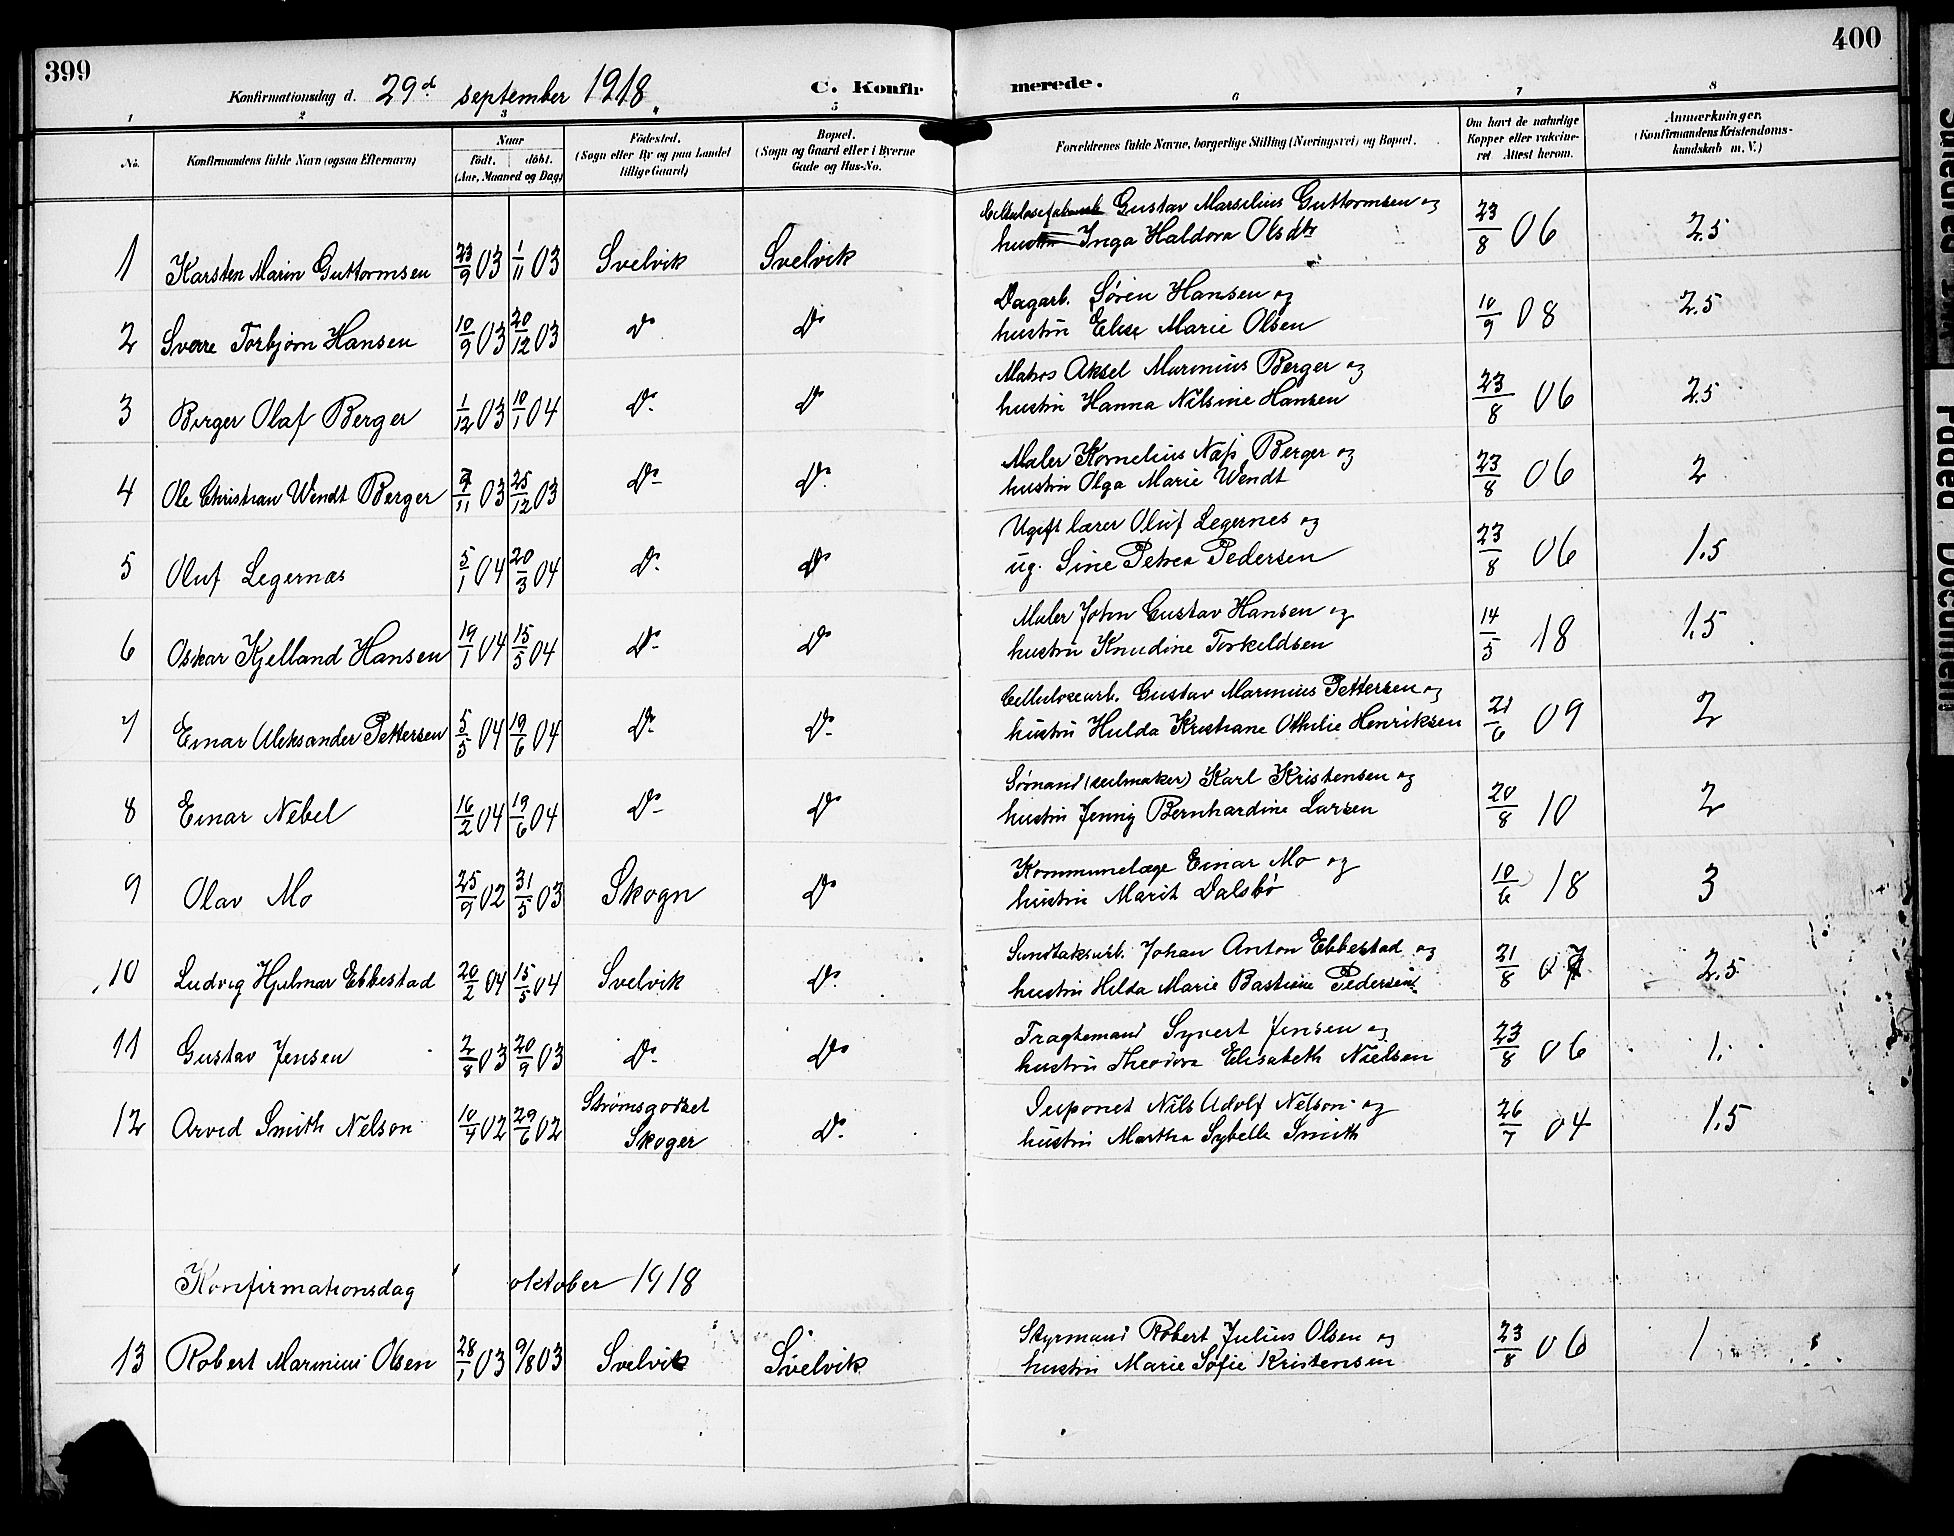 399
400
Konfirmationsdag d. 29d september 1918.
C. Konfirmerede.
1 2 3 5 6 7 8
No. Konfirmandens fulde Navn (ogsaa Efternavn) Naar født. døbt. (Aar, Maaned og Dag) Fødested. (Sogn eller By og paa Landet tillige Gaard) Bopæl. (Sogn og Gaard eller i Byerne Gade og Hus-No. Forældrenes fulde Navne, borgerlige Stilling (Næringsvei) og Bopæl. Om havt de naturlige Kopper eller vakcineret Attest herom. Anmerkninger. (Konfirmandens Kristendomskundskab m. V.)
Gustav Marselius Guttormsen og
1 Karsten Marin Guttormsen 23/9 03 1/11 03 Svelvik Svelvik hustru Inga Haldora Olsdtr 23/8 06 2.5
Dagarb. Søren Hansen og
2 Sverre Torbjørn Hansen 10/9 03 20/12 03 Do Do hustru Elise Marie Olsen 10/9 08 2.5
Matros Aksel Marinius Berger og
3 Birger Olaf Berger 1/12 03 10/1 04 Do Do hustru Hanna Nilsine Hansen 23/8 06 2.5
Maler Kornelius Næss Berger og
4 Ole Christian Wendt Berger /11 03 25/12 03 Do Do hustru Olga Marie Wendt 23/8 06 2
Ugift lærer Oluf Legernes og
5 Oluf Legernæs 5/1 04 20/3 04 Do Do ug. Sine Petrea Pedersen 23/8 06 1.5
Maler John Gustav Hansen og
6 Oskar Kjelland Hansen 19/1 04 15/5 04 Do Do hustru Knudine Torkildsen 14/5 18 1.5
Cellulosearb. Gustav Marinius Pettersen og
7 Einar Aleksander Pettersen 5/5 04 19/6 04 Do Do hustru Hulda Kristiane Othilie Henriksen 21/6 09 2
Sømand (seilmaker) Karl Kristensen og
8 Einar Nebel 16/2 04 19/6 04 Do Do hustru Jenny Bernhardine Larsen 20/8 10 2
Kommunelæge Einar Mo og
9 Olav Mo 25/9 02 31/5 03 Skogn Do hustru Marit Dalsbø 10/6 18 3
Sandtaksarb. Johan Anton Ebbestad og
10 Ludvig Hjalmar Ebbestad 20/2 04 15/5 04 Svelvik Do hustru Hilda Marie Bastine Pedersen 21/8 07 2.5
Fragtemand Syvert Jensen og
11 Gustav Jensen 2/8 03 20/9 03 Do Do hustru Theodora Elisabeth Nielsen 23/8 06 1.
Disponet Nils Adolf Nelson og
12 Arved Smith Nelson 10/4 02 29/6 02 Strømsgodset Skoger Do hustru Martha Sybelle Smith 26/7 04 1.5
Konfirmationsdag oktober 1918
Styrmand Robert Julius Olsen og
13 Robert Marinius Olsen 28/1 03 9/8 03 Svelvik Svelvik hustru Marie Sofie Kristensen 23/8 06 1